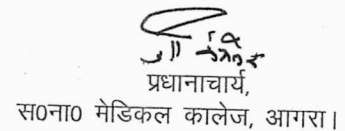 प्रधानाचार्य,
स०ना० मेडिकल कालेज, आगरा।